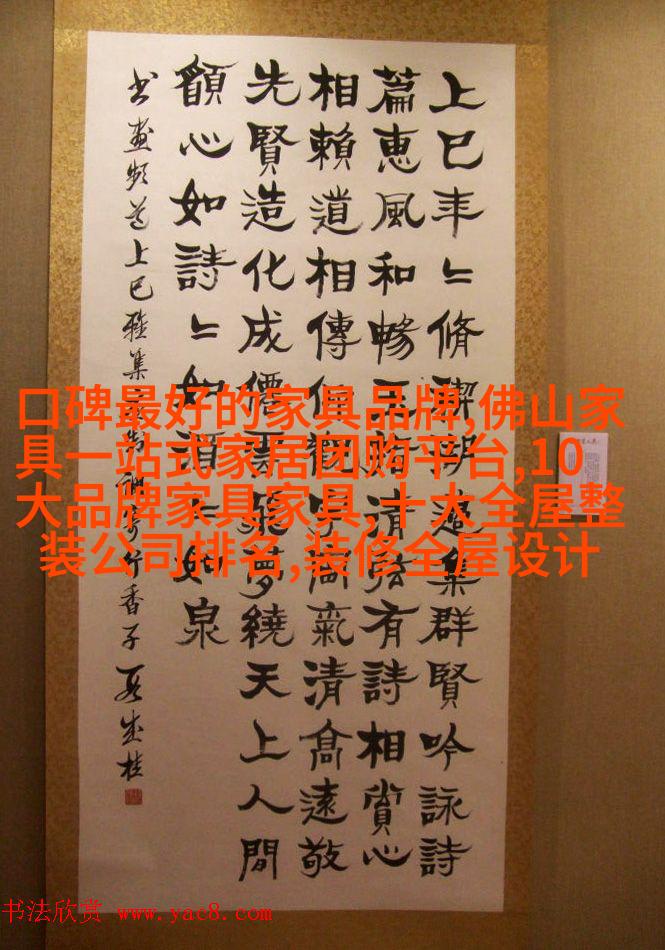 上巳年〻脩禊湖邊集群賢吟詠詩
篇惠風和暢清有詩相賞心
相賴道相傳氣清高遠敬
先賢造化成僊夢繞天上人間
顧心如詩〻如酒〻如泉
书畫频道上巳雅集行香子桂
口碑最好的家具品牌,佛山家
具一站式家居团购平台,10
大品牌家具家具,十大全屋整
装公司排名,装修全屋设计
书法欣赏 www.yac8.com